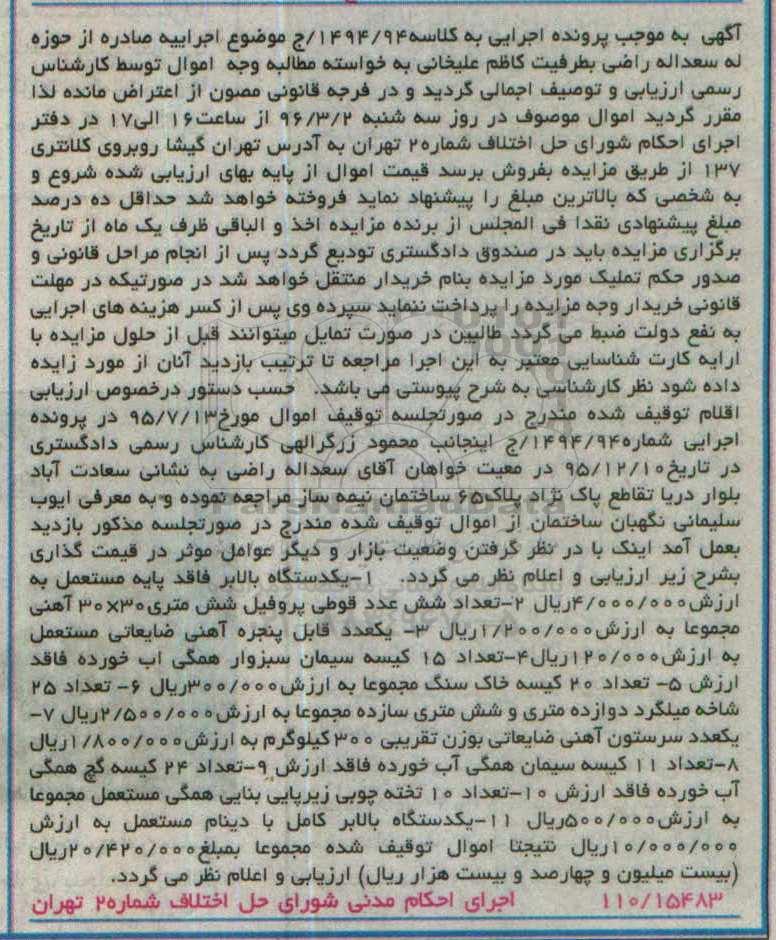 آگهی به موجب پرونده اجرایی به کلاسه۱۴۹۴/۹۴/ج موضوع اجراییه صادره از حوزه
له سعداله راضی بطرفیت کاظم علیخانی به خواسته مطالبه وجه اموال توسط کارشناس
رسمی ارزیابی و توصیف اجمالی گردید و در فرجه قانونی مصون از اعتراض مانده لذا
مقرر گردید اموال موصوف در روز سه شنبه ۹۶/۳/۲ از ساعت۱۶ الی۱۷ در دفتر
اجرای احکام شورای حل اختلاف شماره۲ تهران به آدرس تهران گیشا روبروی کلانتری
۱۳۷ از طریق مزایده بفروش برسد قیمت اموال از پایه بهای ارزیابی شده شروع و
به شخصی که بالاترین مبلغ را پیشنهاد نماید فروخته خواهد شد حداقل ده درصد
مبلغ پیشنهادی نقدا فی المجلس از برنده مزایده اخذ و الباقی ظرف یک ماه از تاریخ
برگزاری مزایده باید در صندوق دادگستری تودیع گردد پس از انجام مراحل قانونی و
صدور حکم تملیک مورد مزایده بنام خریدار منتقل خواهد شد در صورتیکه در مهلت
قانونی خریدار وجه مزایده را پرداخت ننماید سپرده وی پس از کسر هزینه های اجرایی
به نفع دولت ضبط می گردد طالبین در صورت تمایل میتوانند قبل از حلول مزایده با
ارایه کارت شناسایی معتبر به این اجرا مراجعه تا ترتیب بازدید آنان از مورد زایده
داده شود نظر کارشناسی به شرح پیوستی می باشد. حسب دستور درخصوص ارزیابی
اقلام توقیف شده مندرج در صورتجلسه توقیف اموال مورخ۹۵/۷/۱۳ در پرونده
اجرایی شماره۱۴۹۴/۹۴/ج اینجانب محمود زرگرالهی کارشناس رسمی دادگستری
در تاریخ۹۵/۱۲/۱۰ در معیت خواهان آقای سعداله راضی به نشانی سعادت آباد
بلوار دریا تقاطع پاک نژاد پلاک۶۵ ساختمان نیمه ساز مراجعه نموده و به معرفی ایوب
سلیمانی نگهبان ساختمان از اموال توقیف شده مندرج در صورتجلسه مذکور بازدید
بعمل آمد اینک با در نظر گرفتن وضعیت بازار و دیگر عوامل موثر در قیمت گذاری
بشرح زیر ارزیابی و اعلام نظر می گردد. ۱-یکدستگاه بالابر فاقد پایه مستعمل به
ارزش۴/۰۰۰/۰۰۰ریال ۲-تعداد شش عدد قوطی پروفیل شش متری۳۰×۳۰ آهنی
مجموعا به ارزش۱/۲۰۰/۰۰۰ریال ۳- یکعدد قابل پنجره آهنی ضایعاتی مستعمل
به ارزش۱۲۰/۰۰۰ریال۴-تعداد ۱۵ کیسه سیمان سبزوار همگی اب خورده فاقد
ارزش ۵- تعداد ۲۰ کیسه خاک سنگ مجموعا به ارزش۳۰۰/۰۰۰ریال ۶- تعداد ۲۵
شاخه میلگرد دوازده متری و شش متری سازده مجموعا به ارزش۲/۵۰۰/۰۰۰ریال ۷-
یکعدد سرستون آهنی ضایعاتی بوزن تقریبی ۳۰۰کیلوگرم به ارزش۱/۸۰۰/۰۰۰ریال
۸-تعداد ۱۱ کیسه سیمان همگی آب خورده فاقد ارزش ۹-تعداد ۲۴ کیسه گچ همگی
آب خورده فاقد ارزش ۱۰-تعداد ۱۰ تخته چوبی زیرپایی بنایی همگی مستعمل مجموعا
به ارزش۵۰۰/۰۰۰ریال ۱۱-یکدستگاه بالابر کامل با دینام مستعمل به ارزش
۱۰/۰۰۰/۰۰۰ریال نتیجتا اموال توقیف شده مجموعا بمبلغ۲۰/۴۲۰/۰۰۰ریال
(بیست میلیون و چهارصد و بیست هزار ریال) ارزیابی و اعلام نظر می گردد.
۱۱۰/۱۵۴۸۳ اجرای احکام مدنی شورای حل اختلاف شماره۲ تهران
ParsNamadData